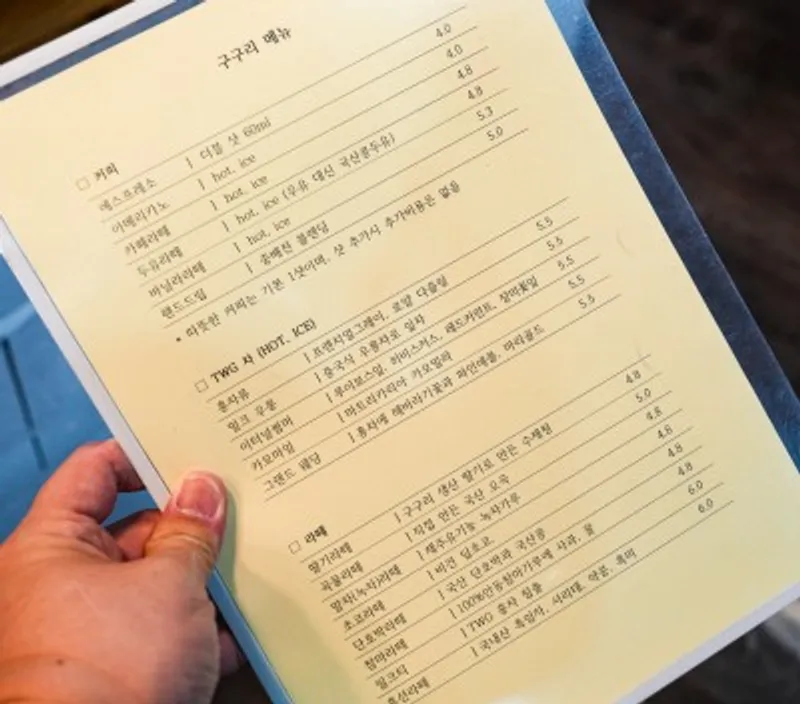 구구리 메뉴
□ 커피
에스프레소 | 더블 샷 60ml 4.0
아메리카노 | hot, ice 4.0
카페라떼 | hot, ice 4.8
두유라떼 | hot, ice (우유 대신 국산콩두유) 4.8
바닐라라떼 | hot, ice 5.3
핸드드립 | 중배전 블렌딩 5.0
• 따뜻한 커피는 기본 1샷이며, 샷 추가시 추가비용은 없음
□ TWG 차 (HOT, ICE)
홍차류 | 프렌치얼그레이, 로얄 다즐링 5.5
밀크 우롱 | 중국식 우롱차로 잎차 5.5
이터널썸머 | 루이보스잎, 히비스커스, 레드커런트, 장미꽃잎 5.5
카모마일 | 마트리카리아 카모밀라 5.5
그랜드 웨딩 | 홍차에 해바라기꽃과 파인애플, 마리골드 5.5
□ 라떼
딸기라떼 | 구구리 생산 딸기로 만든 수제청 4.8
곡물라떼 | 직접 만든 국산 오곡 5.0
말차(녹차)라떼 | 제주유기농 녹차가루 4.8
초코라떼 | 비건 딥초코 4.8
단호박라떼 | 국산 단호박과 국산콩 4.8
참마라떼 | 100%안동참마가루에 사과, 꿀 6.0
밀크티 | TWG 홍차 침출 6.0
| 국내산 흑임자, 서리태, 약콩, 흑미